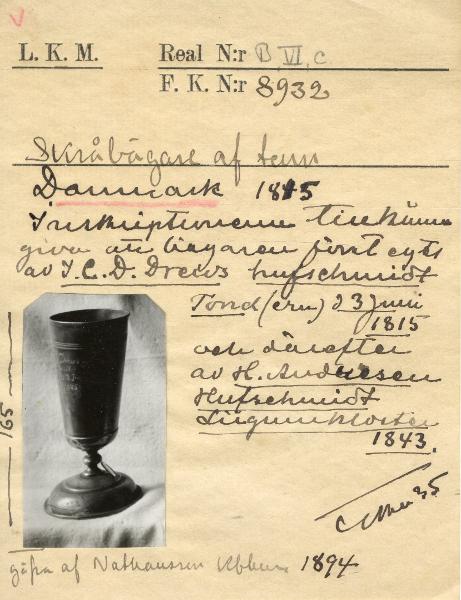 L. K. M. Real N:r B VI, c
F. K. N:r 8932
Skråbägare af tenn
Danmark 1815
Inskriptionerna tillkänna
giva att bägaren först ägts
av J. C. D. Drews hufschmidt
Tond(ern) d 3 Juni
1815
och därefter
av H. Andresen
Hufschmidt
Lügumkloster
1843.
165
gåfva af Nathanson 1894